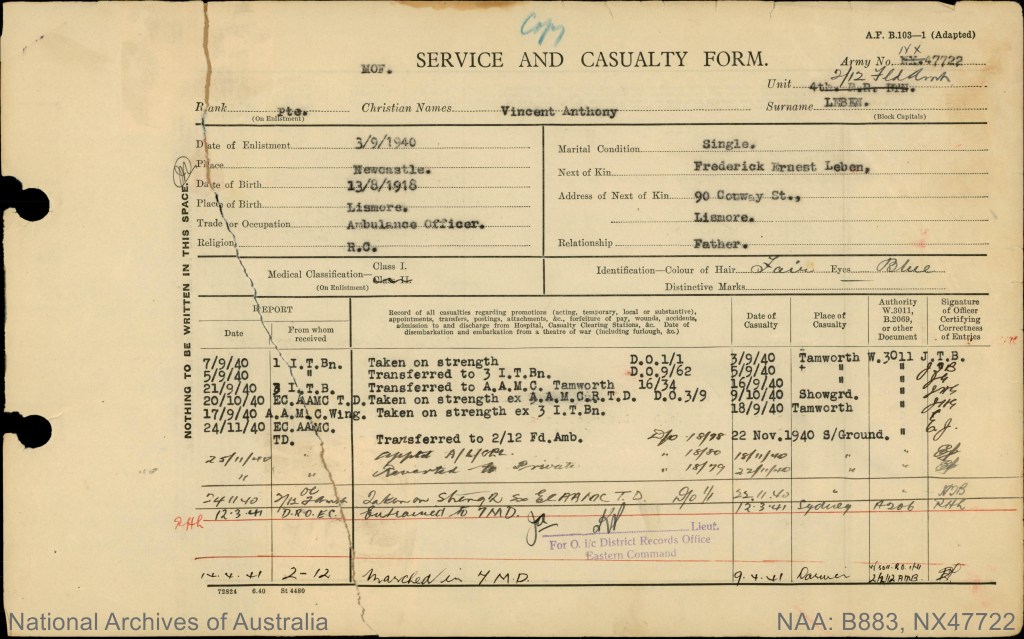 Copy
A.F. B.103—1 (Adapted)
MOF. SERVICE AND CASUALTY FORM.
NX
Army No. NX.47722
2/12 Fld Amb
Unit 4th.
Rank Pte. Christian Names Vincent Anthony Surname LEBEN.
(On Enlistment) (Block Capitals)
NOTHING TO BE WRITTEN IN THIS SPACE.
Date of Enlistment 3/9/1940
Place Newcastle.
Date of Birth 13/8/1918
Place of Birth Lismore.
Trade or Occupation Ambulance Officer.
Religion R.C.
Marital Condition Single.
Next of Kin Frederick Ernest Leben,
Address of Next of Kin 90 Conway St.,
Lismore.
Relationship Father.
Medical Classification— Class I.
(On Enlistment) Class II.
Identification—Colour of Hair Fair Eyes Blue
Distinctive Marks
REPORT
Date
From whom received
Record of all casualties regarding promotions (acting, temporary, local or substantive),
appointments, transfers, postings, attachments, &c., forfeiture of pay, wounds, accidents,
admission to and discharge from Hospital, Casualty Clearing Stations, &c. Date of
disembarkation and embarkation from a theatre of war (including furlough, &c.)
Date of Casualty
Place of Casualty
Authority W.3011, B.2069, or other Document
Signature of Officer Certifying Correctness of Entries
7/9/40 1 I.T.Bn. Taken on strength D.O.1/1 3/9/40 Tamworth W.3011 J.T.B.
5/9/40 " Transferred to 3 I.T.Bn. D.O.9/62 5/9/40 " "
21/9/40 3 I.T.B. Transferred to A.A.M.C. Tamworth 16/34 16/9/40 "
20/10/40 EC.AAMC T.D. Taken on strength ex A.A.M.C.R.T.D. D.O.3/9 9/10/40 Showgrd. "
17/9/40 A.A.M.C.Wing. Taken on strength ex 3 I.T.Bn. 18/9/40 Tamworth "
24/11/40 EC.AAMC.
TD. Transferred to 2/12 Fd.Amb. D/o 18/78 22 Nov.1940 S/Ground. " E.J.
25/11/40 " Appt'd A/L/CPL. " 18/80 18/11/40 " "
" " Reverted to Private " 18/79 22/11/40 " "
24 11 40 OC 2/12 Fd Amb Taken on Strength Ex EC AAMC T.D. D/o 1/1 22.11.40 "
RHL 12.3.41 D.R.O. E.C. Entrained to 7 M.D. 12.3.41 Sydney A206 RHL
Lieut.
For O. i/c District Records Office
Eastern Command
14.4.41 2-12 Marched in 7 M.D. 9.4.41 Darwin
72824 6.40 St 4480
National Archives of Australia
NAA: B883, NX47722